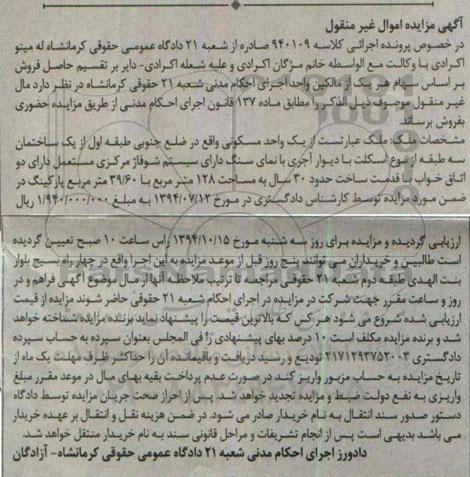 آگهی مزایده اموال غیر منقول
در خصوص پرونده اجرائی کلاسه ۹۴۰۱۰۹ صادره از شعبه ۲۱ دادگاه عمومی حقوقی کرمانشاه له مینو
اکرادی با وکالت مع الواسطه خانم مژگان اکرادی و علیه شعله اکرادی- دایر بر تقسیم حاصل فروش
بر اساس سهام هر یک از مالکین واحد اجرای احکام مدنی شعبه ۲۱ حقوقی کرمانشاه در نظر دارد مال
غیر منقول موصوف ذیل الذکر را مطابق ماده ۱۳۷ قانون اجرای احکام مدنی از طریق مزایده حضوری
بفروش برساند
مشخصات ملک: ملک عبارتست از یک واحد مسکونی واقع در ضلع جنوبی طبقه اول از یک ساختمان
سه طبقه از نوع اسکلت با دیوار آجری با نمای سنگ دارای سیستم شوفاژ مرکزی مستعمل دارای دو
اتاق خواب با قدمت ساخت حدود ۳۰ سال به مساحت ۱۲۸ متر مربع با ۳۹/۶۰ متر مربع پارکینگ در
ضمن مورد مزایده توسط کارشناس دادگستری در مورخ ۱۳۹۴/۰۷/۱۲ به مبلغ ۱/۹۴۰/۰۰۰/۰۰۰ ریال
ارزیابی گردیده و مزایده برای روز سه شنبه مورخ ۱۳۹۴/۱۰/۱۵ راس ساعت ۱۰ صبح تعیین گردیده
است طالبین و خریداران می توانند پنج روز قبل از موعد مزایده به این اجرا واقع در چهار راه بسیج بلوار
بنت الهدی طبقه دوم شعبه ۲۱ حقوقی مراجعه تا ترتیب ملاحظه آنها از مال موضوع آگهی فراهم و در
روز و ساعت مقرر جهت شرکت در مزایده در اجرای احکام شعبه ۲۱ حقوقی حاضر شوند مزایده از قیمت
ارزیابی شده شروع می شود هر کس که بالاترین قیمت را پیشنهاد نماید برنده مزایده شناخته خواهد
شد و برنده مزایده مکلف است ۱۰ درصد بهای پیشنهادی را فی المجلس بعنوان سپرده به حساب سپرده
دادگستری ۲۱۷۱۲۹۳۷۵۲۰۰۳ تودیع و رسید دریافت و باقیمانده آن را حداکثر ظرف مهلت یک ماه از
تاریخ مزایده به حساب مزبور واریز کند در صورت عدم پرداخت بقیه بهای مال در موعد مقرر مبلغ
واریزی به نفع دولت ضبط و مزایده تجدید خواهد شد. پس از احراز صحت جریان مزایده توسط دادگاه
دستور صدور سند انتقال به نام خریدار صادر می شود. در ضمن هزینه نقل و انتقال بر عهده خریدار
می باشد بدیهی است پس از انجام تشریفات و مراحل قانونی سند به نام خریدار منتقل خواهد شد.
دادورز اجرای احکام مدنی شعبه ۲۱ دادگاه عمومی حقوقی کرمانشاه- آزادگان